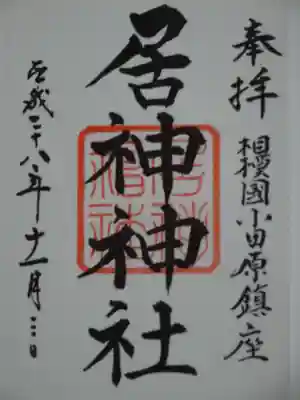 奉拝
相模國小田原鎮座
居神神社
平成二十八年十一月三日